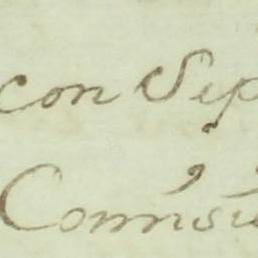 con Sep
Comisi